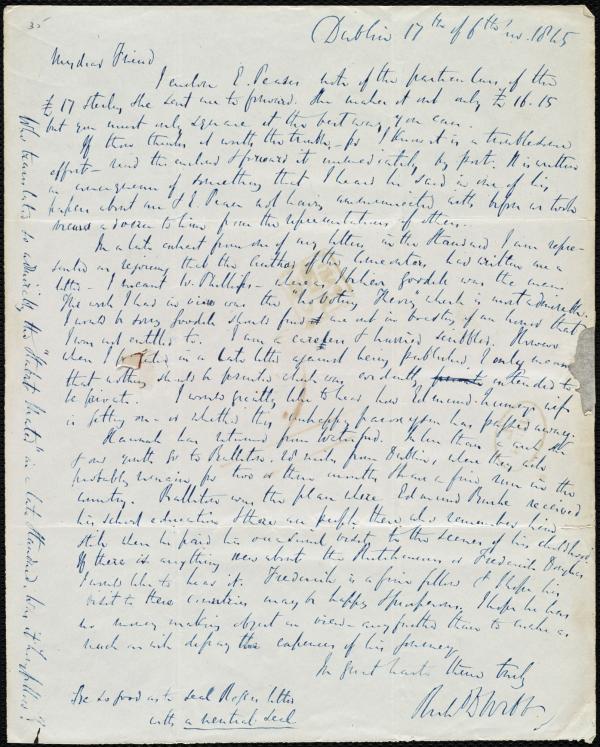 35
Dublin 17th of 6th mo. 1845
My dear Friend
I enclose E. Pease's note of the particulars of the
£17 Sterlg she sent me to forward. She makes it out only £16.15
but you must only square it the best way you can.
If thou thinks it worth the trouble - for I know it is a troublesome
effort - read the enclosed & forward it immediately by post. It is written
in consequence of something that I heard he said in one of his
papers about me & E. Pease not having communicated with before we took
a version to him from the representations of others.
In a late extract from one of my letters in the Standard I am repre-
sented as rejoicing that the author of the had written me a
letter - I meant W. Phillips - whereas Goodell was the man.
The work I had in view was the "No Voting Theory" which is most admirable.
I would be sorry Goodell should find me out in boasting of an honor that
I was not entitled to. I am a careless & hurried scribbler. However
when I in a late letter against being published, I only meant
that nothing should be printed which was evidently intended to
be private. I would greatly like to hear how Edmund Quincy's wife
is getting on - or whether this unhappy paroxysm has passed away.
Hannah has returned from Waterford. She then and the
of our youth go to Ballitore 28 miles from Dublin where they will
probably remain for two or three months & have a fine run in the
country. Ballitore was the place where Edmund Burke received
his school education & there are people there who remember him
still when he paid his occasional visits to the scenes of his childhood.
If there is anything new about the Hutchinsons or Frederick Douglass
I would like to hear it. Frederick is a fine fellow & I hope his
visit to these countries may be happy & prosperous. I hope he has
no money making object in view - any further than to make as
much as will defray the expenses of his journey.
In great haste thine truly
Richd D Webb
Be so good as to seal Roger's letter
with a neutral seal
Who translated so admirably the in a late Standard. Was it Longfellow?